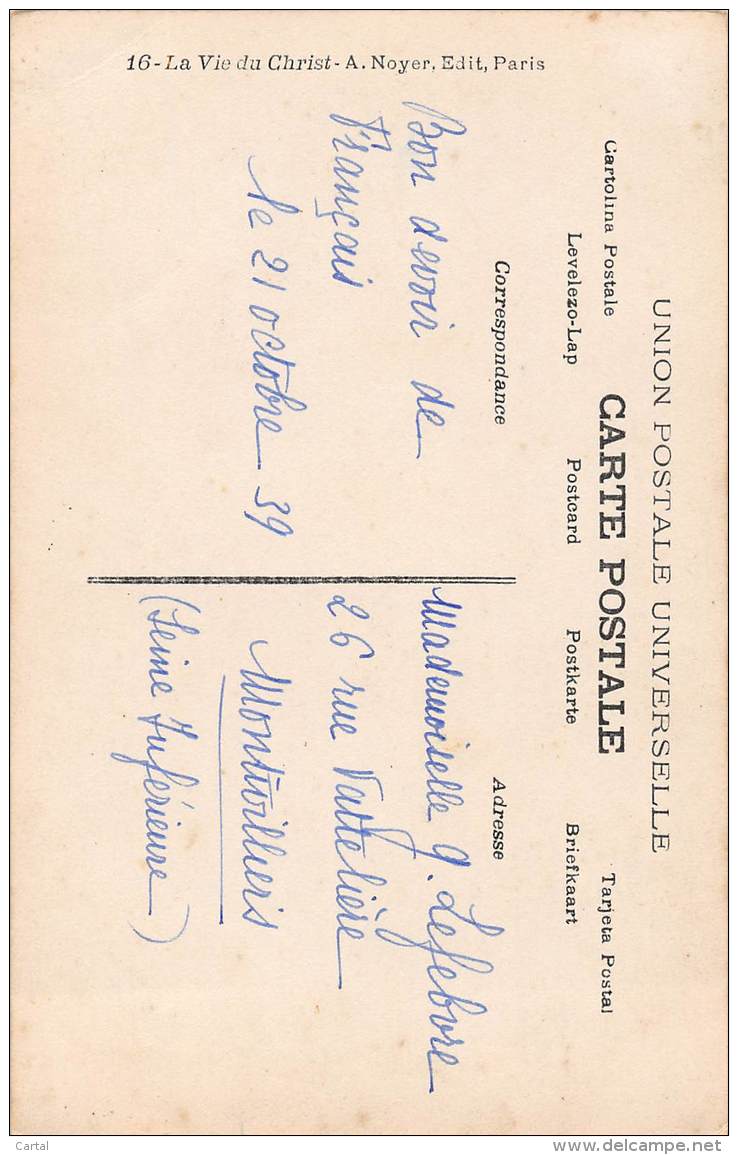 UNION POSTALE UNIVERSELLE
CARTE POSTALE
Cartolina Postale
Tarjeta Postal
Levelezo-Lap Postcard Postkarte Briefkaart
Correspondance
Bon devoir de
Français
le 21 octobre 39
Adresse
Mademoiselle G. Lefebvre
26 rue Vattelière
Montivilliers
(Seine Inférieure)
16-La Vie du Christ-A. Noyer, Edit, Paris
Cartal
www.delcampe.net